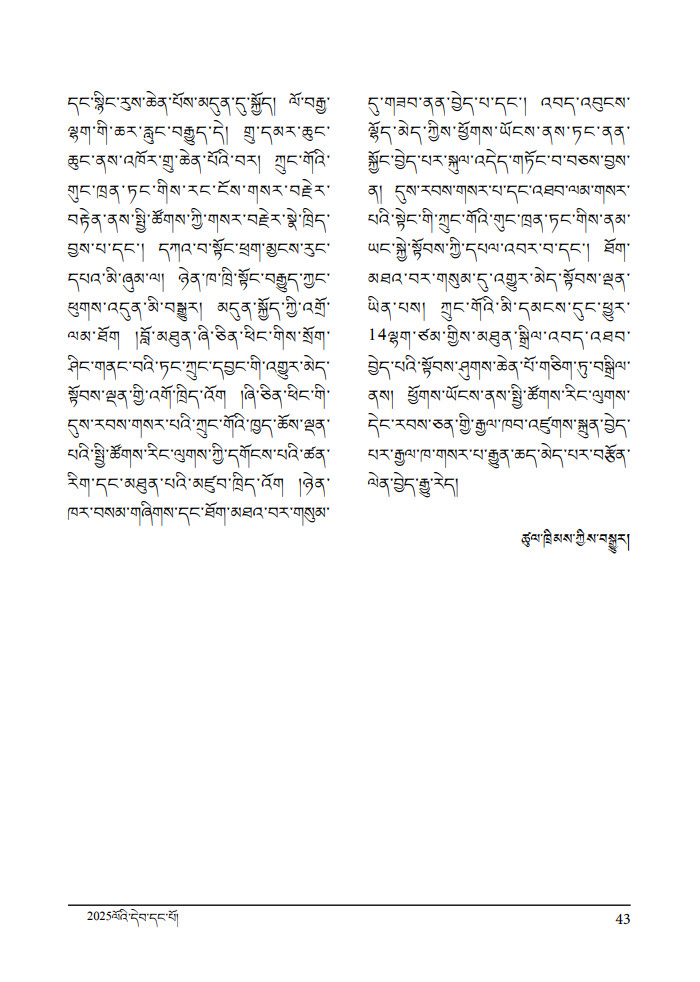 དང་སྙིང་རུས་ཆེན་པོས་མདུན་དུ་སྐྱོད། ལོ་བརྒྱ་
ལྷག་གི་ཆར་རླུང་བརྒྱུད་དེ། གྲུ་དམར་ཆུང་
ཆུང་ནས་འཁོར་གྲུ་ཆེན་པོའི་བར། ཀྲུང་གོའི་
གུང་ཁྲན་ཏང་གིས་རང་ངོས་གསར་བརྗེར་
བརྟེན་ནས་སྤྱི་ཚོགས་ཀྱི་གསར་བརྗེར་སྣེ་ཁྲིད་
བྱས་པ་དང་། དཀའ་བ་སྟོང་ཕྲག་མྱངས་རུང་
དཔའ་མི་ཞུམ་ལ། ཉེན་ཁ་ཁྲི་སྟོང་བརྒྱུད་ཀྱང་
ཕུགས་འདུན་མི་བསྒྱུར། མདུན་སྐྱོད་ཀྱི་འགྲོ་
ལམ་ཐོག །བློ་མཐུན་ཞི་ཅིན་ཕིང་གིས་སྲོག་
ཤིང་གནང་བའི་ཏང་ཀྲུང་དབྱང་གི་འགྱུར་མེད་
སྟོབས་ལྡན་གྱི་འགོ་ཁྲིད་འོག །ཞི་ཅིན་ཕིང་གི་
དུས་རབས་གསར་པའི་ཀྲུང་གོའི་ཁྱད་ཆོས་ལྡན་
པའི་སྤྱི་ཚོགས་རིང་ལུགས་ཀྱི་དགོངས་པའི་ཚན་
རིག་དང་མཐུན་པའི་མཛུབ་ཁྲིད་འོག །ཉེན་
ཁར་བསམ་གཞིགས་དང་ཐོག་མཐའ་བར་གསུམ་
དུ་གཟབ་ནན་བྱེད་པ་དང་། འབད་འབུངས་
ལྷོད་མེད་ཀྱིས་ཕྱོགས་ཡོངས་ནས་ཏང་ནན་
སྐྱོང་བྱེད་པར་སྐུལ་འདེད་གཏོང་བ་བཅས་བྱས་
ན། དུས་རབས་གསར་པ་དང་འཐབ་ལམ་གསར་
པའི་སྟེང་གི་ཀྲུང་གོའི་གུང་ཁྲན་ཏང་གིས་ནམ་
ཡང་སྐྱེ་སྟོབས་ཀྱི་དཔལ་འབར་བ་དང་། ཐོག་
མཐའ་བར་གསུམ་དུ་འགྱུར་མེད་སྟོབས་ལྡན་
ཡིན་པས། ཀྲུང་གོའི་མི་དམངས་དུང་ཕྱུར་
14ལྷག་ཙམ་གྱིས་མཐུན་སྒྲིལ་འབད་འཐབ་
བྱེད་པའི་སྟོབས་ཤུགས་ཆེན་པོ་གཅིག་ཏུ་བསྒྲིལ་
ནས། ཕྱོགས་ཡོངས་ནས་སྤྱི་ཚོགས་རིང་ལུགས་
དེང་རབས་ཅན་གྱི་རྒྱལ་ཁབ་འཛུགས་སྐྲུན་བྱེད་
པར་རྒྱལ་ཁ་གསར་པ་རྒྱུན་ཆད་མེད་པར་བརྩོན་
ལེན་བྱེད་རྒྱུ་རེད།
ཚུལ་ཁྲིམས་ཀྱིས་བསྒྱུར།
2025ལོའི་དེབ་དང་པོ།
43